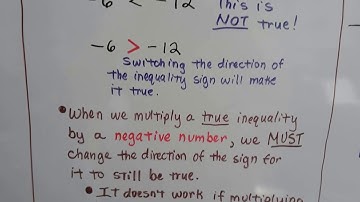 -6 < -12 This is
NOT true!
-6 > -12
Switching the direction of
the inequality sign will make
it true.
• When we multiply a true inequality
by a negative number, we MUST
change the direction of the sign for
it to still be true.
• It doesn't work if multiplying